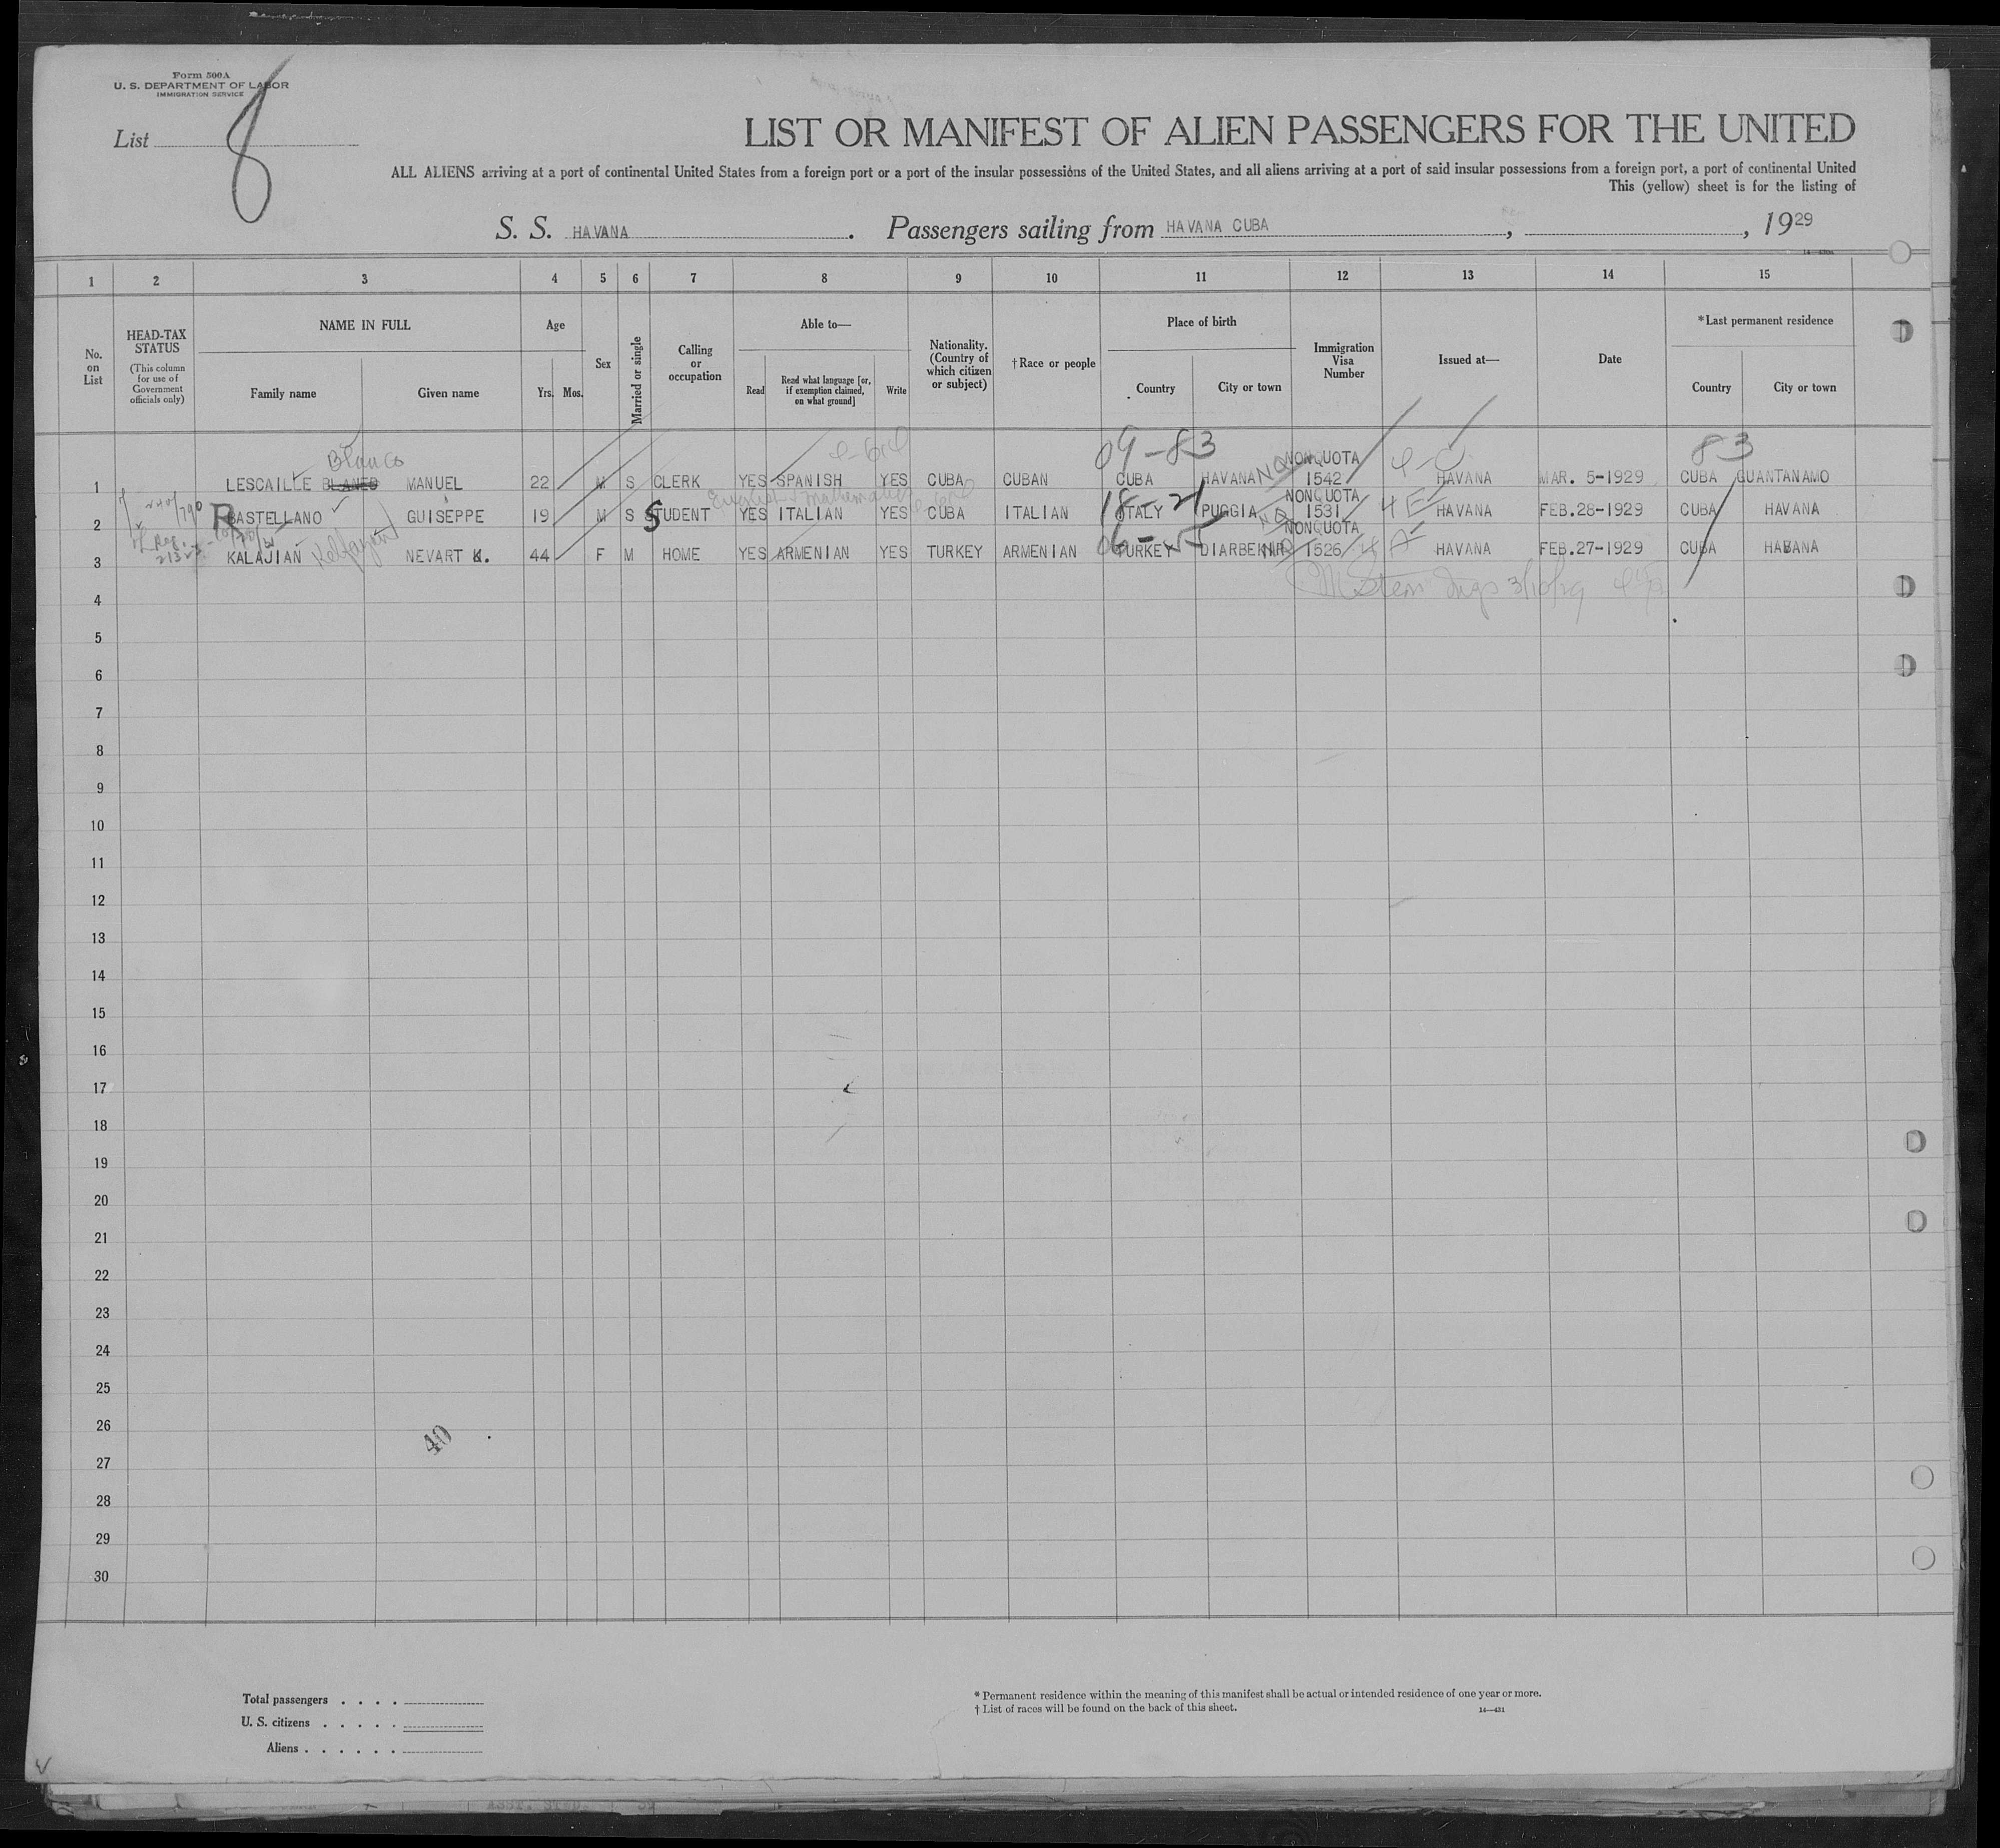 Form 500A
U. S. DEPARTMENT OF LABOR
IMMIGRATION SERVICE
List 8
LIST OR MANIFEST OF ALIEN PASSENGERS FOR THE UNITED
ALL ALIENS arriving at a port of continental United States from a foreign port or a port of the insular possessions of the United States, and all aliens arriving at a port of said insular possessions from a foreign port, a port of continental United
This (yellow) sheet is for the listing of
S. S. HAVANA. Passengers sailing from HAVANA CUBA, , 1929
1 2 3 4 5 6 7 8 9 10 11 12 13 14 15
No. on List
HEAD-TAX STATUS
(This column for use of Government officials only)
NAME IN FULL
Family name Given name
Age
Yrs. Mos.
Sex
Married or single
Calling or occupation
Able to—
Read Read what language [or, if exemption claimed, on what ground] Write
Nationality. (Country of which citizen or subject)
†Race or people
Place of birth
Country City or town
Immigration Visa Number
Issued at—
Date
*Last permanent residence
Country City or town
Blanco 09-83 NONQUOTA 83
1 LESCAILLE BLANED MANUEL 22 M S CLERK YES SPANISH YES CUBA CUBAN CUBA HAVANA 1542 HAVANA MAR. 5-1929 CUBA GUANTANAMO
English mathematics 18-21 NONQUOTA
2 RASTELLANO GUISEPPE 19 M S STUDENT YES ITALIAN YES CUBA ITALIAN ITALY PUGGIA 1531 HAVANA FEB.28-1929 CUBA HAVANA
06-55 NONQUOTA
3 KALAJIAN NEVART K. 44 F M HOME YES ARMENIAN YES TURKEY ARMENIAN TURKEY DIARBEKIR 1526 HAVANA FEB.27-1929 CUBA HABANA
Stern Insp 3/10/29
4
5
6
7
8
9
10
11
12
13
14
15
16
17
18
19
20
21
22
23
24
25
26
27
28
29
30
40
Total passengers . . . .
U. S. citizens . . . . .
Aliens . . . . . .
* Permanent residence within the meaning of this manifest shall be actual or intended residence of one year or more.
† List of races will be found on the back of this sheet. 14—421